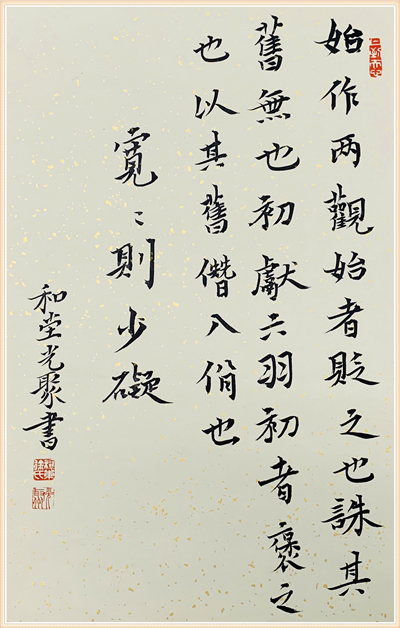 始作两觀始者貶之也誅其
舊無也初獻六羽初者褒之
也以其舊僭八佾也
寬〻則少礙
和堂光聚書